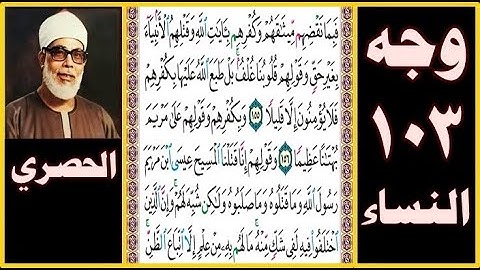 وجه
١٠٣
النساء
فَبِمَا نَقْضِهِم مِّيثَٰقَهُمْ وَكُفْرِهِم بِـَٔايَٰتِ ٱللَّهِ وَقَتْلِهِمُ ٱلْأَنۢبِيَآءَ
بِغَيْرِ حَقٍّ وَقَوْلِهِمْ قُلُوبُنَا غُلْفٌۢ بَلْ طَبَعَ ٱللَّهُ عَلَيْهَا بِكُفْرِهِمْ
فَلَا يُؤْمِنُونَ إِلَّا قَلِيلًا ١٥٥ وَبِكُفْرِهِمْ وَقَوْلِهِمْ عَلَىٰ مَرْيَمَ
بُهْتَٰنًا عَظِيمًا ١٥٦ وَقَوْلِهِمْ إِنَّا قَتَلْنَا ٱلْمَسِيحَ عِيسَى ٱبْنَ مَرْيَمَ
رَسُولَ ٱللَّهِ وَمَا قَتَلُوهُ وَمَا صَلَبُوهُ وَلَٰكِن شُبِّهَ لَهُمْ ۚ وَإِنَّ ٱلَّذِينَ
ٱخْتَلَفُوا۟ فِيهِ لَفِى شَكٍّ مِّنْهُ ۚ مَا لَهُم بِهِۦ مِنْ عِلْمٍ إِلَّا ٱتِّبَاعَ ٱلظَّنِّ ۚ
الحصري